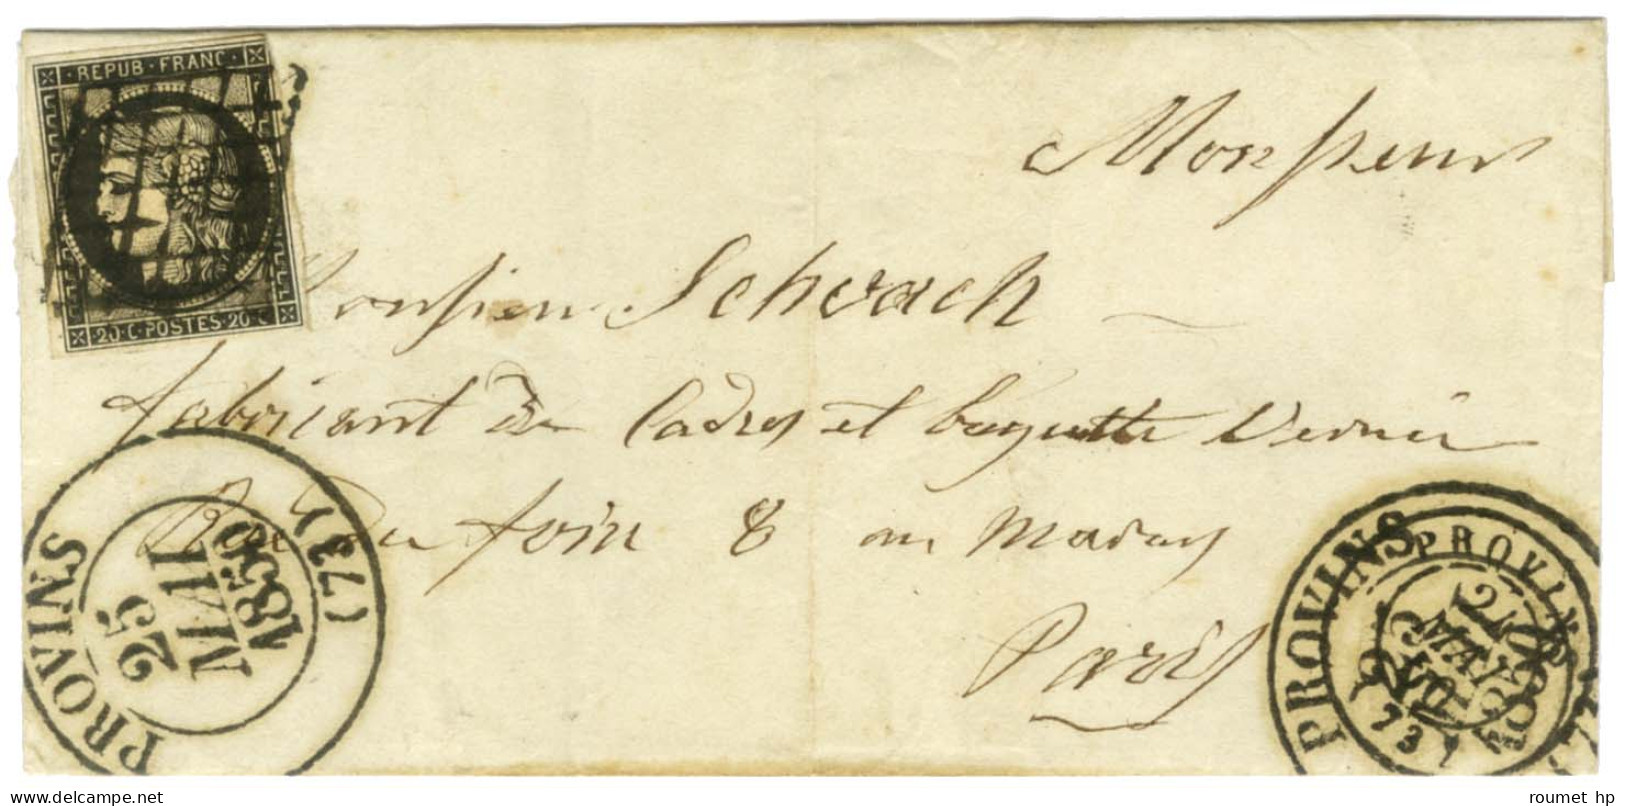 REPUB · FRANC ·
20 · C · POSTES · 20 · C
Monsieur
Monsieur Schvach
fabricant de Cadres et baguette Vernie
Rue du foin 8 au marais
Paris
PROVINS
25
MAI
1850
(73)
PROVINS
PROVINS
MAI
(73)
roumet hp